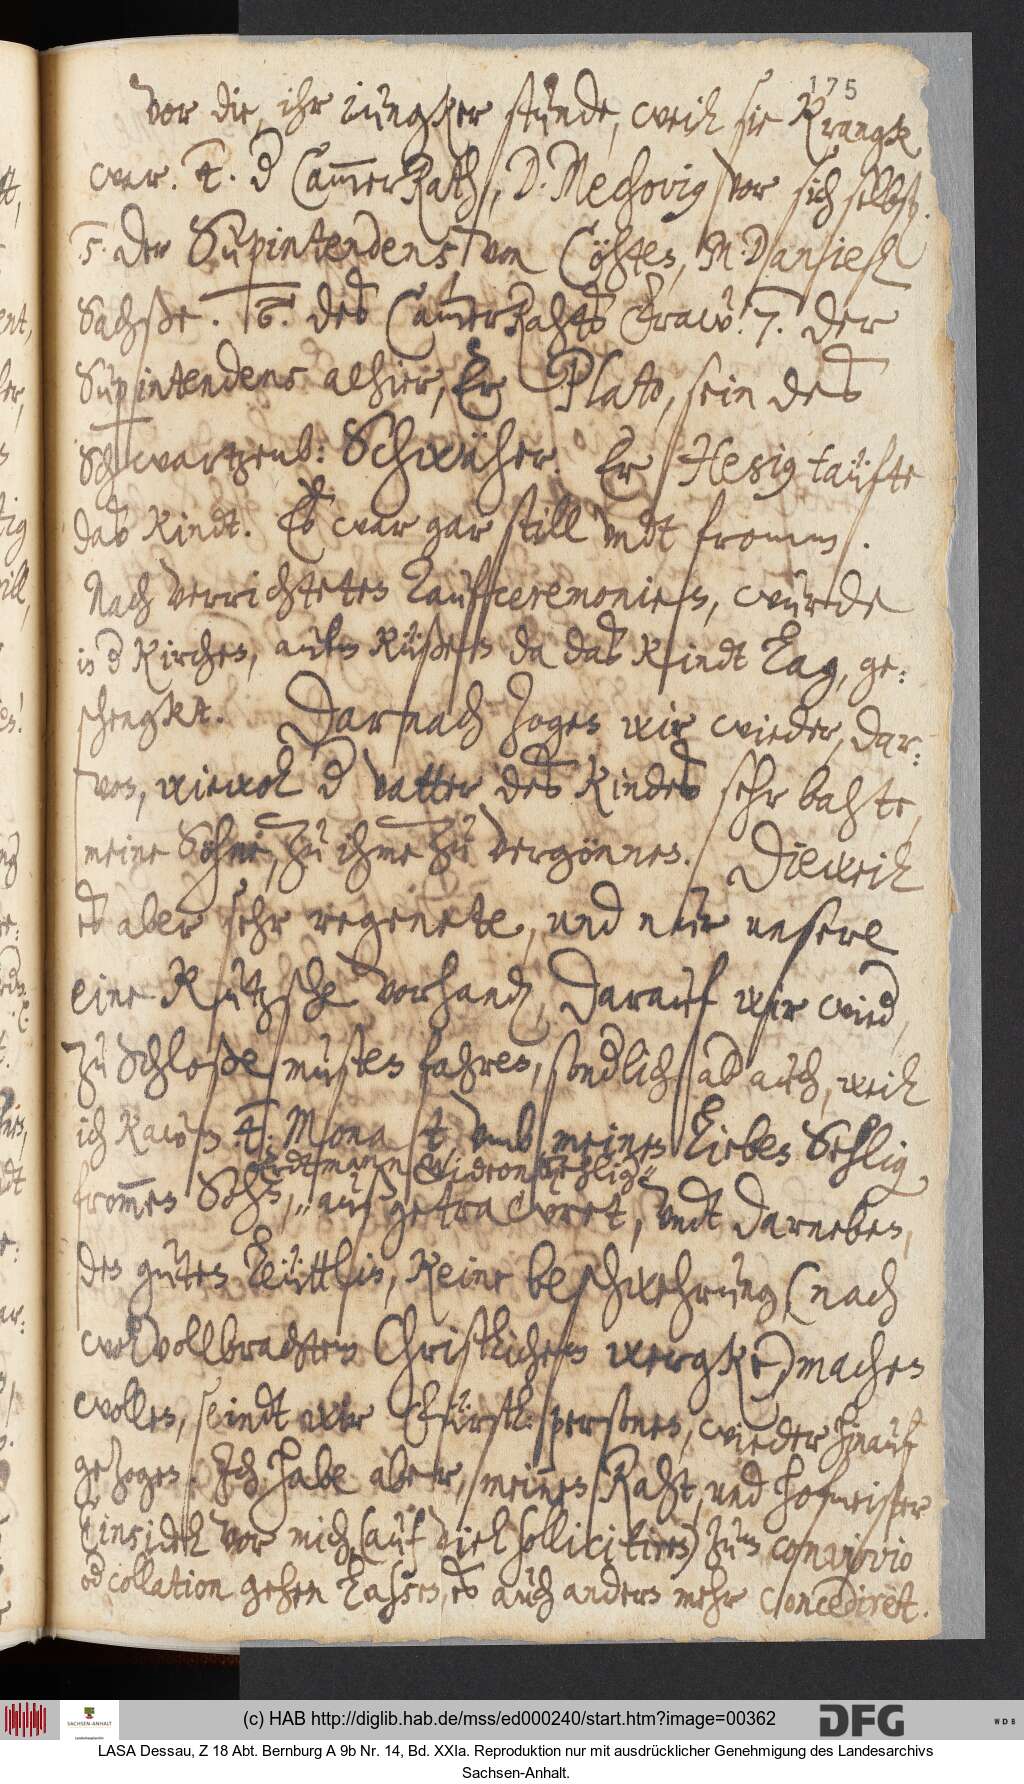 175
vor die, ihr iungker stunde, weil sie Krangk
war. 4. d CammerRath, D. Mechovig vor sich selbst.
5. der Supintendens von Cöhten, M. Daniel
Sachße. 6. des CammerRahts Fraw. 7. der
Supintendens alhier, Er Plato, sein des
Schwartzenb: Schwäher. Er Hesig tauft
das Kindt. Es war gar still vndt fromm.
Nach verrichteten Taufceremonien, wurde
in d Kirchen, aufm Küßen da das Kindt lag, ge:
schengkt. Darnach zogen wir wieder, dar:
von, wiewol d vatter des Kindes sehr bahte,
meine Söhne, zu ihme zu vergönnen. Dieweil
es aber sehr regenete, und nur unsere
eine Kutzsche vorhanden, darauf wir wied,
zu Schloße musten fahren, sondlich ab auch, weil
ich kawm 4. Monat vmb meinen lieben Sehlig
Erdtmann Gideon Sehlig
frommen Sohn, auß getrawret, vndt darneben,
den guten leüttlin, keine beschwehrung (nach
wol vollbrachtem Christlichem wergke) machen
wollen, seindt wir Fürstl: personen, wieder hinauf
gezogen. Ich habe aber, meinen Raht, und hofmeister
Einsidel vor mich (auf viel sollicitiren) zum convivio
od collation gehen laßen, es auch anders mehr concedirt.
(c) HAB http://diglib.hab.de/mss/ed000240/start.htm?image=00362
SACHSEN-ANHALT
DFG
WDB
LASA Dessau, Z 18 Abt. Bernburg A 9b Nr. 14, Bd. XXIa. Reproduktion nur mit ausdrücklicher Genehmigung des Landesarchivs
Sachsen-Anhalt.